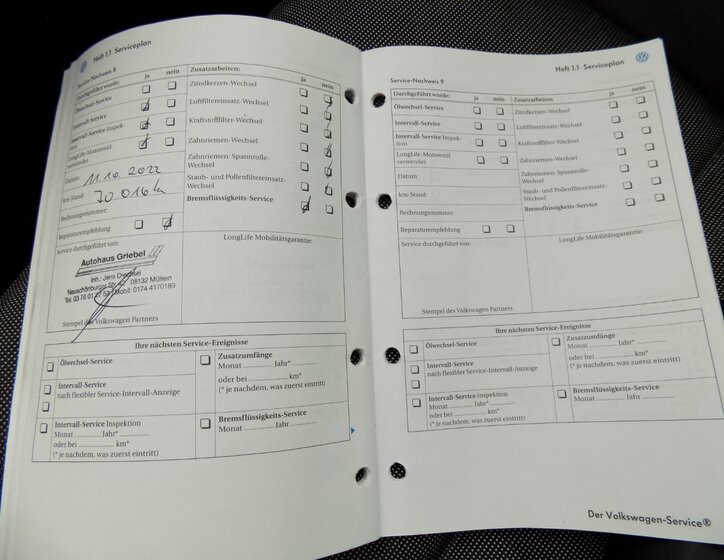 Heft 1.1 Serviceplan
Service-Nachweis 8
Durchgeführt wurde: ja nein
Ölwechsel-Service
Intervall-Service
Intervall-Service Inspek-
tion
LongLife-Motorenöl
verwendet
Datum: 11.10.2022
km-Stand: 70 016 k
Rechnungsnummer:
Reparaturempfehlung
Zusatzarbeiten: ja nein
Zündkerzen-Wechsel
Luftfiltereinsatz-Wechsel
Kraftstofffilter-Wechsel
Zahnriemen-Wechsel
Zahnriemen: Spannrolle-
Wechsel
Staub- und Pollenfiltereinsatz-
Wechsel
Bremsflüssigkeits-Service
Service durchgeführt von:
Autohaus Griebel
Inh.: Jens
08132 Mülsen
Mobil: 0174 4170189
Stempel des Volkswagen Partners
LongLife Mobilitätsgarantie:
Ihre nächsten Service-Ereignisse
Ölwechsel-Service
Intervall-Service
nach flexibler Service-Intervall-Anzeige
Intervall-Service Inspektion
Monat ............ Jahr* ............
oder bei ............ km*
(* je nachdem, was zuerst eintritt)
Zusatzumfänge
Monat ............ Jahr* ............
oder bei ............ km*
(* je nachdem, was zuerst eintritt)
Bremsflüssigkeits-Service
Monat ............ Jahr ............
Heft 1.1 Serviceplan
Service-Nachweis 9
Durchgeführt wurde: ja nein
Ölwechsel-Service
Intervall-Service
Intervall-Service Inspek-
tion
LongLife-Motorenöl
verwendet
Datum:
km-Stand:
Rechnungsnummer:
Reparaturempfehlung
Zusatzarbeiten: ja nein
Zündkerzen-Wechsel
Luftfiltereinsatz-Wechsel
Kraftstofffilter-Wechsel
Zahnriemen-Wechsel
Zahnriemen: Spannrolle-
Wechsel
Staub- und Pollenfiltereinsatz-
Wechsel
Bremsflüssigkeits-Service
Service durchgeführt von:
LongLife Mobilitätsgarantie:
Stempel des Volkswagen Partners
Ihre nächsten Service-Ereignisse
Ölwechsel-Service
Intervall-Service
nach flexibler Service-Intervall-Anzeige
Intervall-Service Inspektion
Monat ............ Jahr* ............
oder bei ............ km*
(* je nachdem, was zuerst eintritt)
Zusatzumfänge
Monat ............ Jahr* ............
oder bei ............ km*
(* je nachdem, was zuerst eintritt)
Bremsflüssigkeits-Service
Monat ............ Jahr ............
Der Volkswagen-Service®